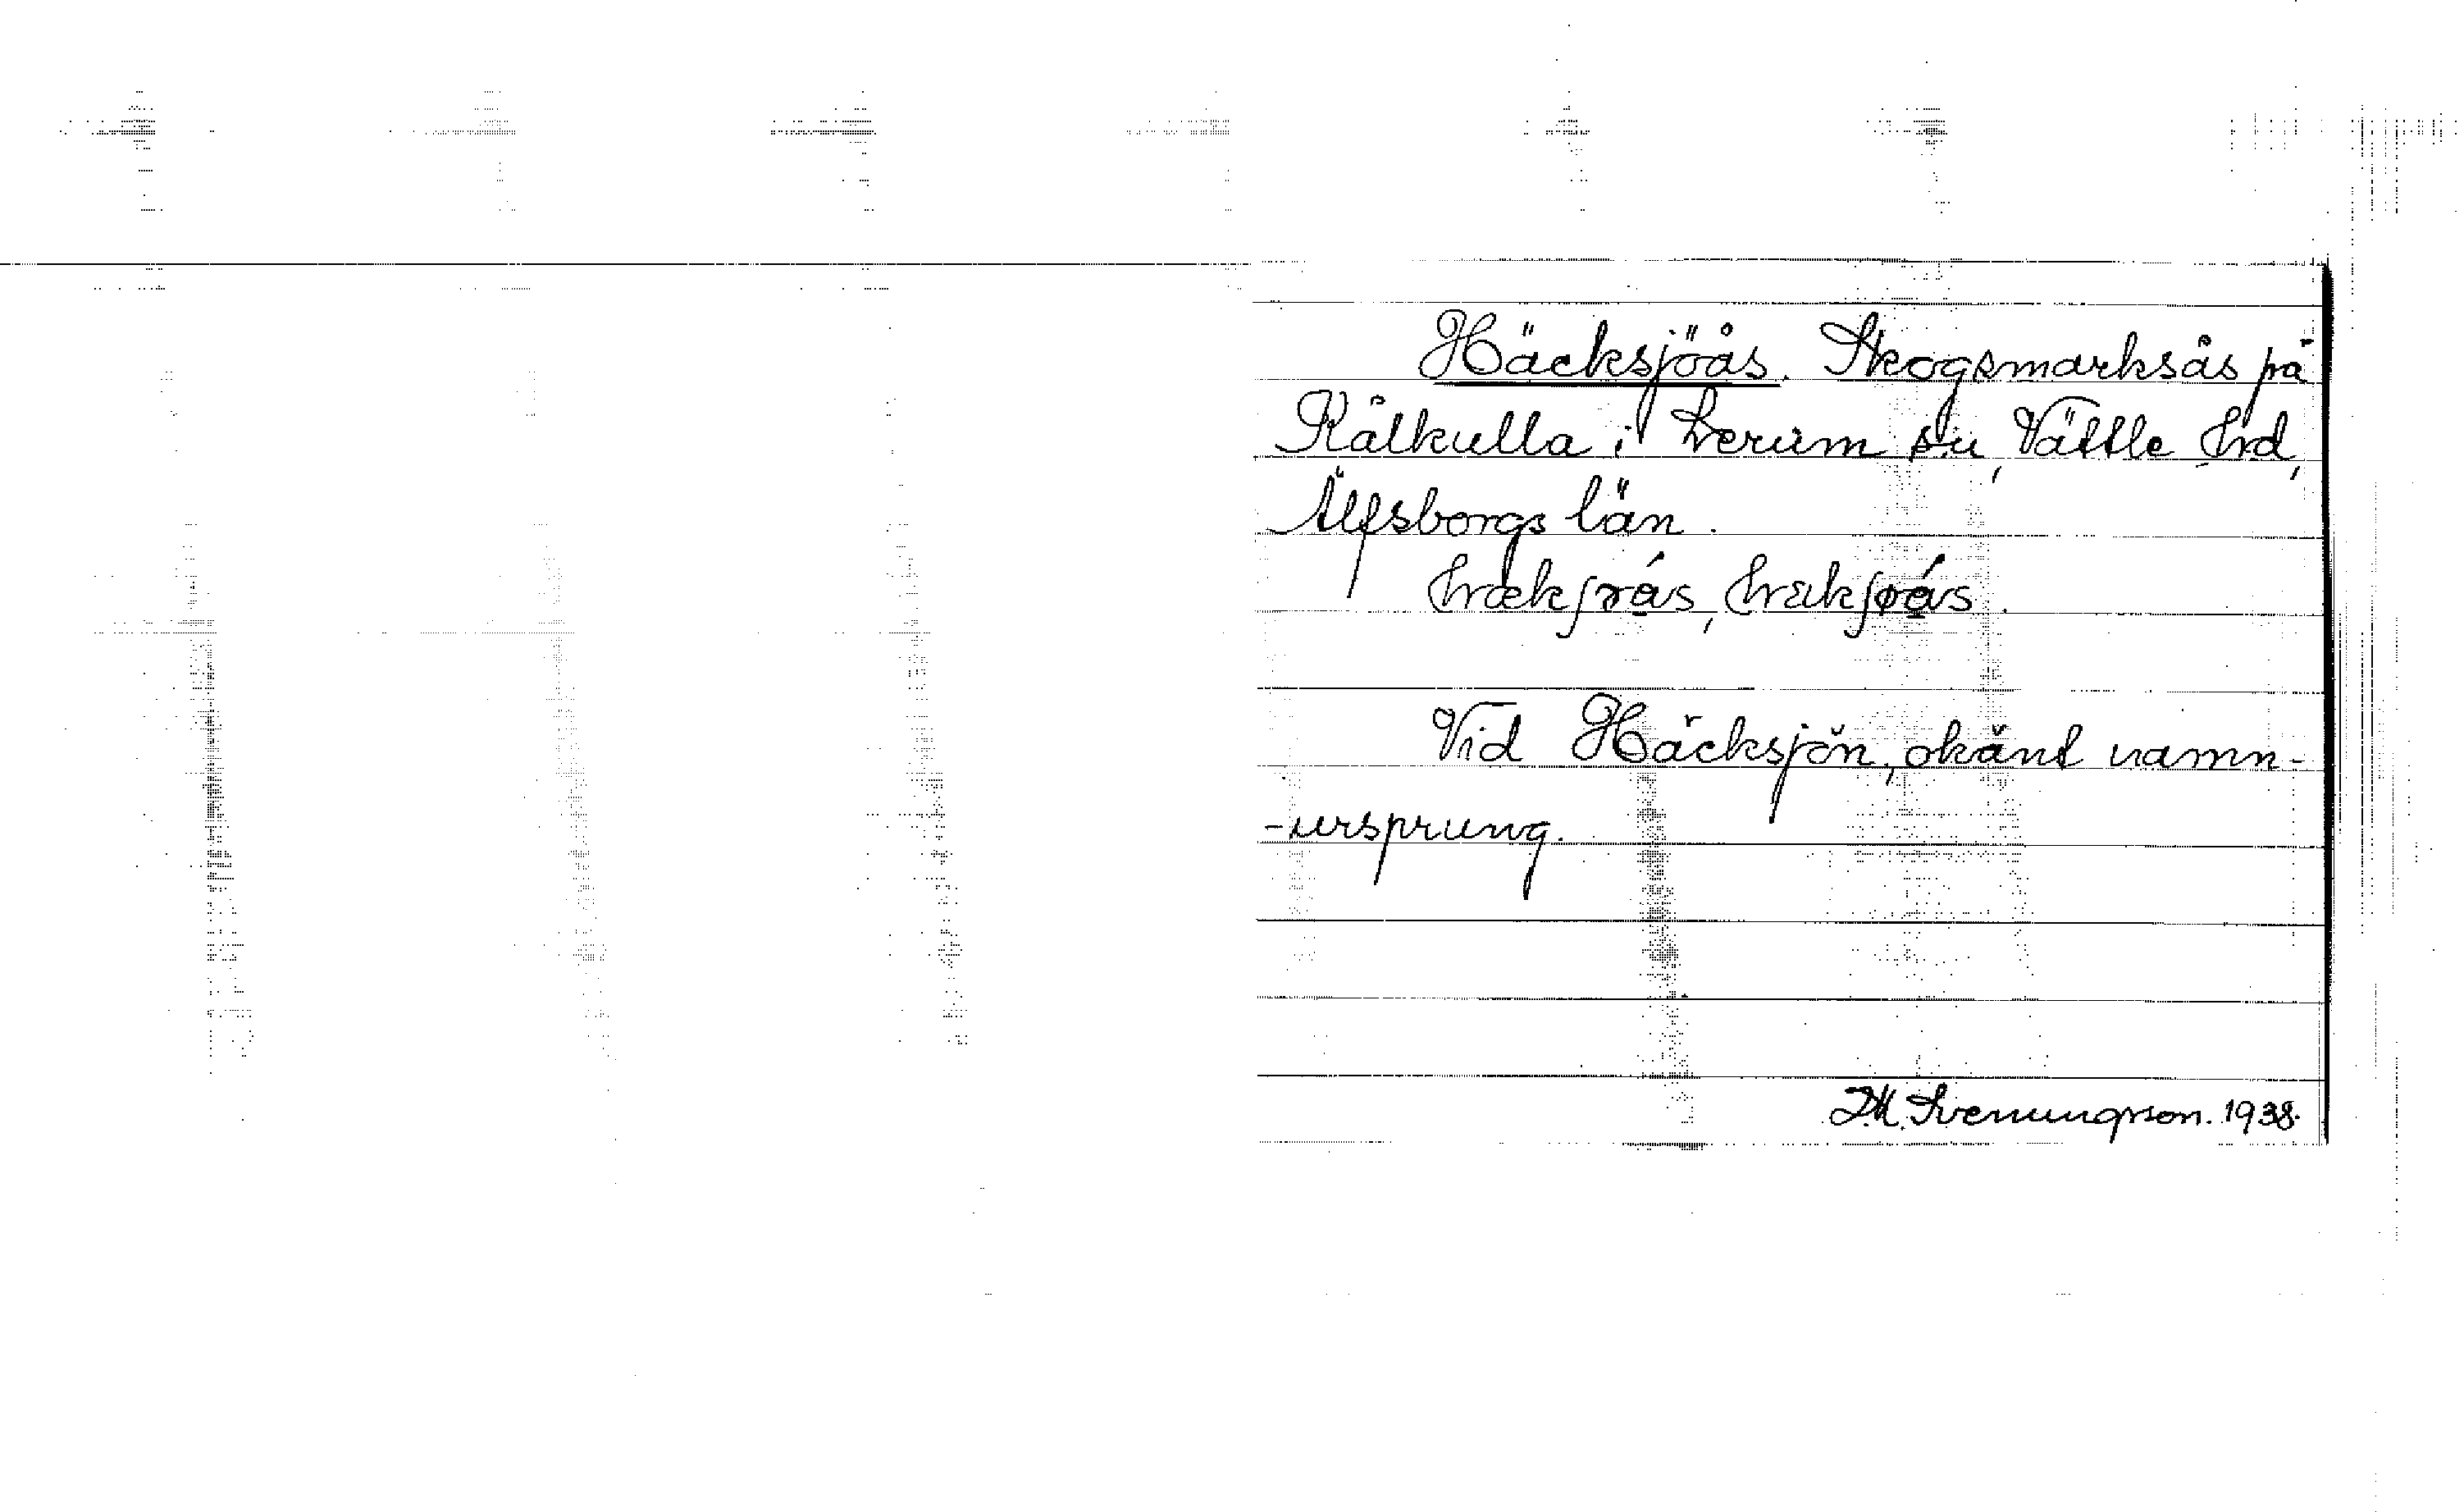 Häcksjöås. Skogsmarksås på
Kålkulla i Lerum sn, Vättle hd,
Älfsborgs län.
Vid Häcksjön, okänt namn-
-ursprung.
D.M. Svenungson. 1938.